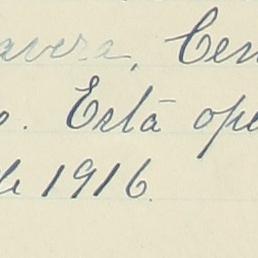 avera, Cen
o. Está ope
de 1916.